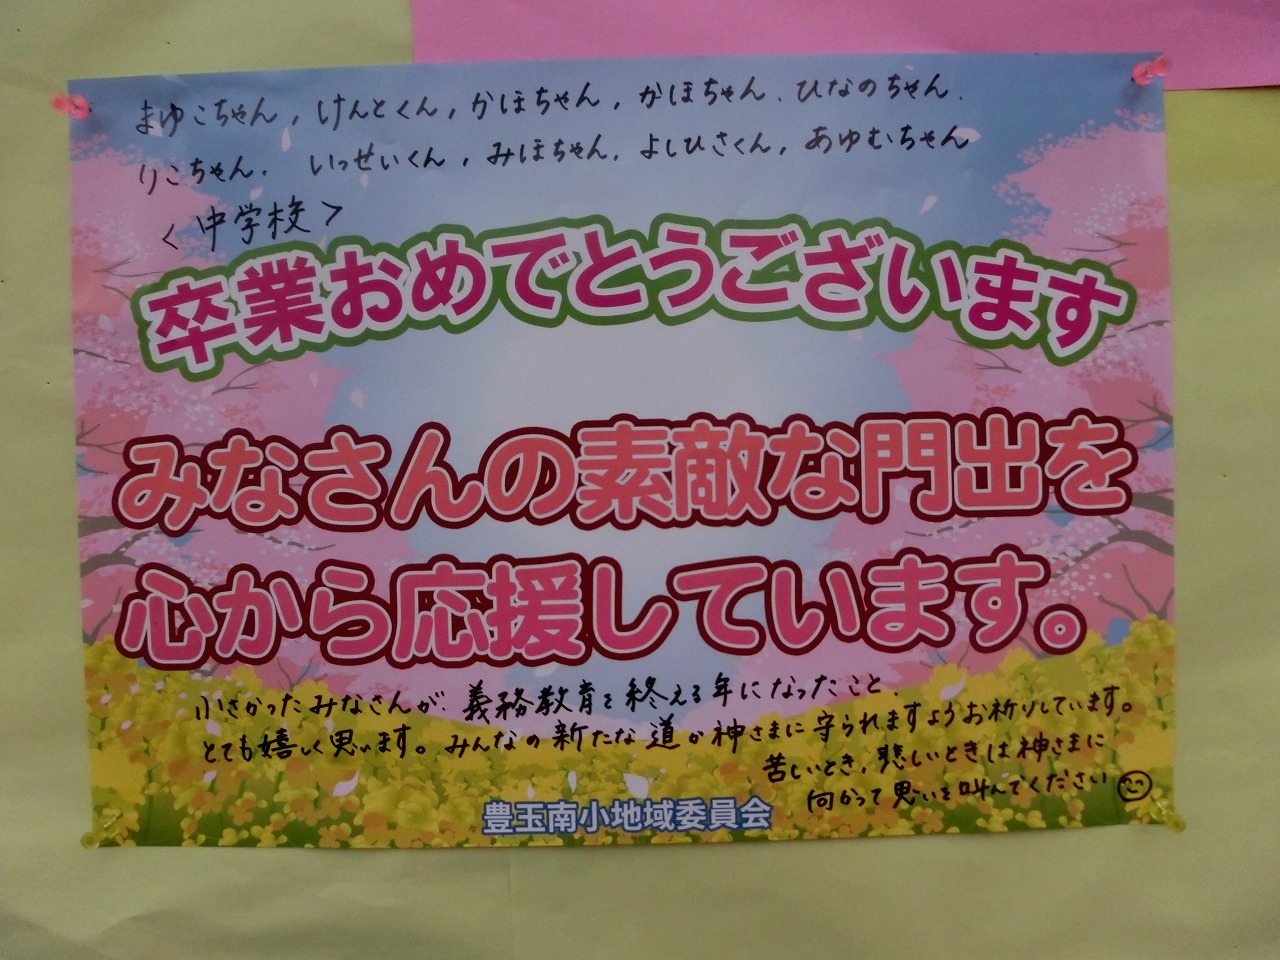 まゆこちゃん，けんとくん，かほちゃん，かほちゃん．ひなのちゃん．
りこちゃん．いっせいくん，みほちゃん．よしひさくん，あゆむちゃん
＜中学校＞
卒業おめでとうございます
みなさんの素敵な門出を
心から応援しています。
小さかったみなさんが、義務教育を終える年になったこと、
とても嬉しく思います。みんなの新たな道が神さまに守られますようお祈りしています。
苦しいとき，悲しいときは神さまに
向かって思いを叫んでください
豊玉南小地域委員会